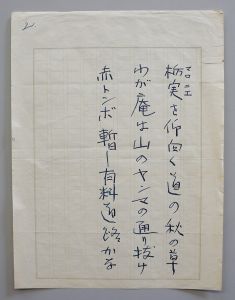 2.
栃実を仰向く道の秋の草
マロニエ
わが庵は山のヤンマの通り抜け
赤トンボ暫し有料道路かな